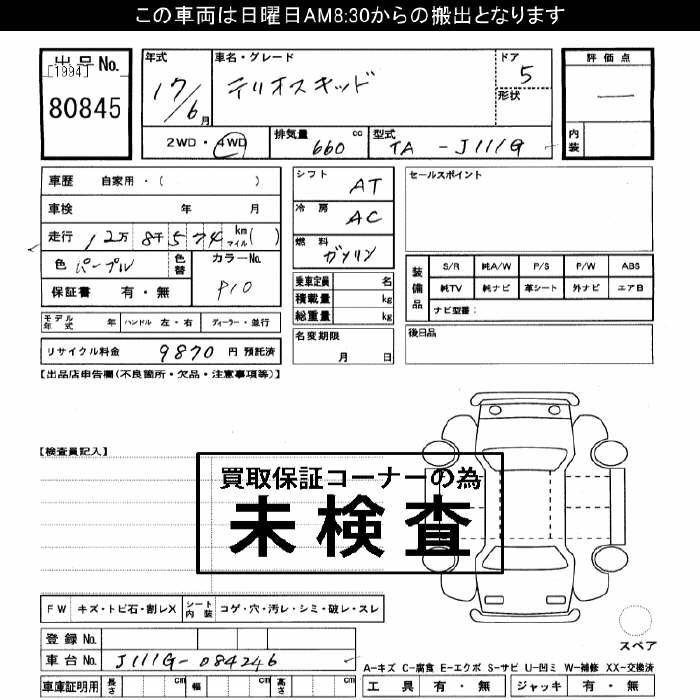 この車両は日曜日AM8:30からの搬出となります
出品No.
[1994]
80845
年式
17/6月
車名・グレード
テリオスキッド
ドア
5
形状
評価点
—
内装
2WD・4WD
排気量 660 cc
型式 TA - J111G
車歴 自家用・( )
車検 年 月
走行 12万 8千 574 km マイル ( )
色 パープル
色替
カラーNo.
P10
保証書 有・無
シフト AT
冷房 AC
燃料 ガソリン
乗車定員 名
積載量 kg
総重量 kg
セールスポイント
装備品
S/R 純A/W P/S P/W ABS
純TV 純ナビ 革シート 外ナビ エアB
ナビ型番:
モデル年式 年 ハンドル 左・右 ディーラー・並行
名変期限
月 日
後日品
リサイクル料金 9870 円 預託済
【出品店申告欄(不良箇所・欠品・注意事項等)】
【検査員記入】
買取保証コーナーの為
未検査
FW キズ・トビ石・割レX シート内装 コゲ・穴・汚レ・シミ・破レ・スレ
登録No.
車台No. J111G-084246
スペア
A-キズ C-腐食 E-エクボ S-サビ U-凹ミ W-補修 XX-交換済
車庫証明用 長さ cm 幅 cm 高さ cm
工具 有・無 ジャッキ 有・無